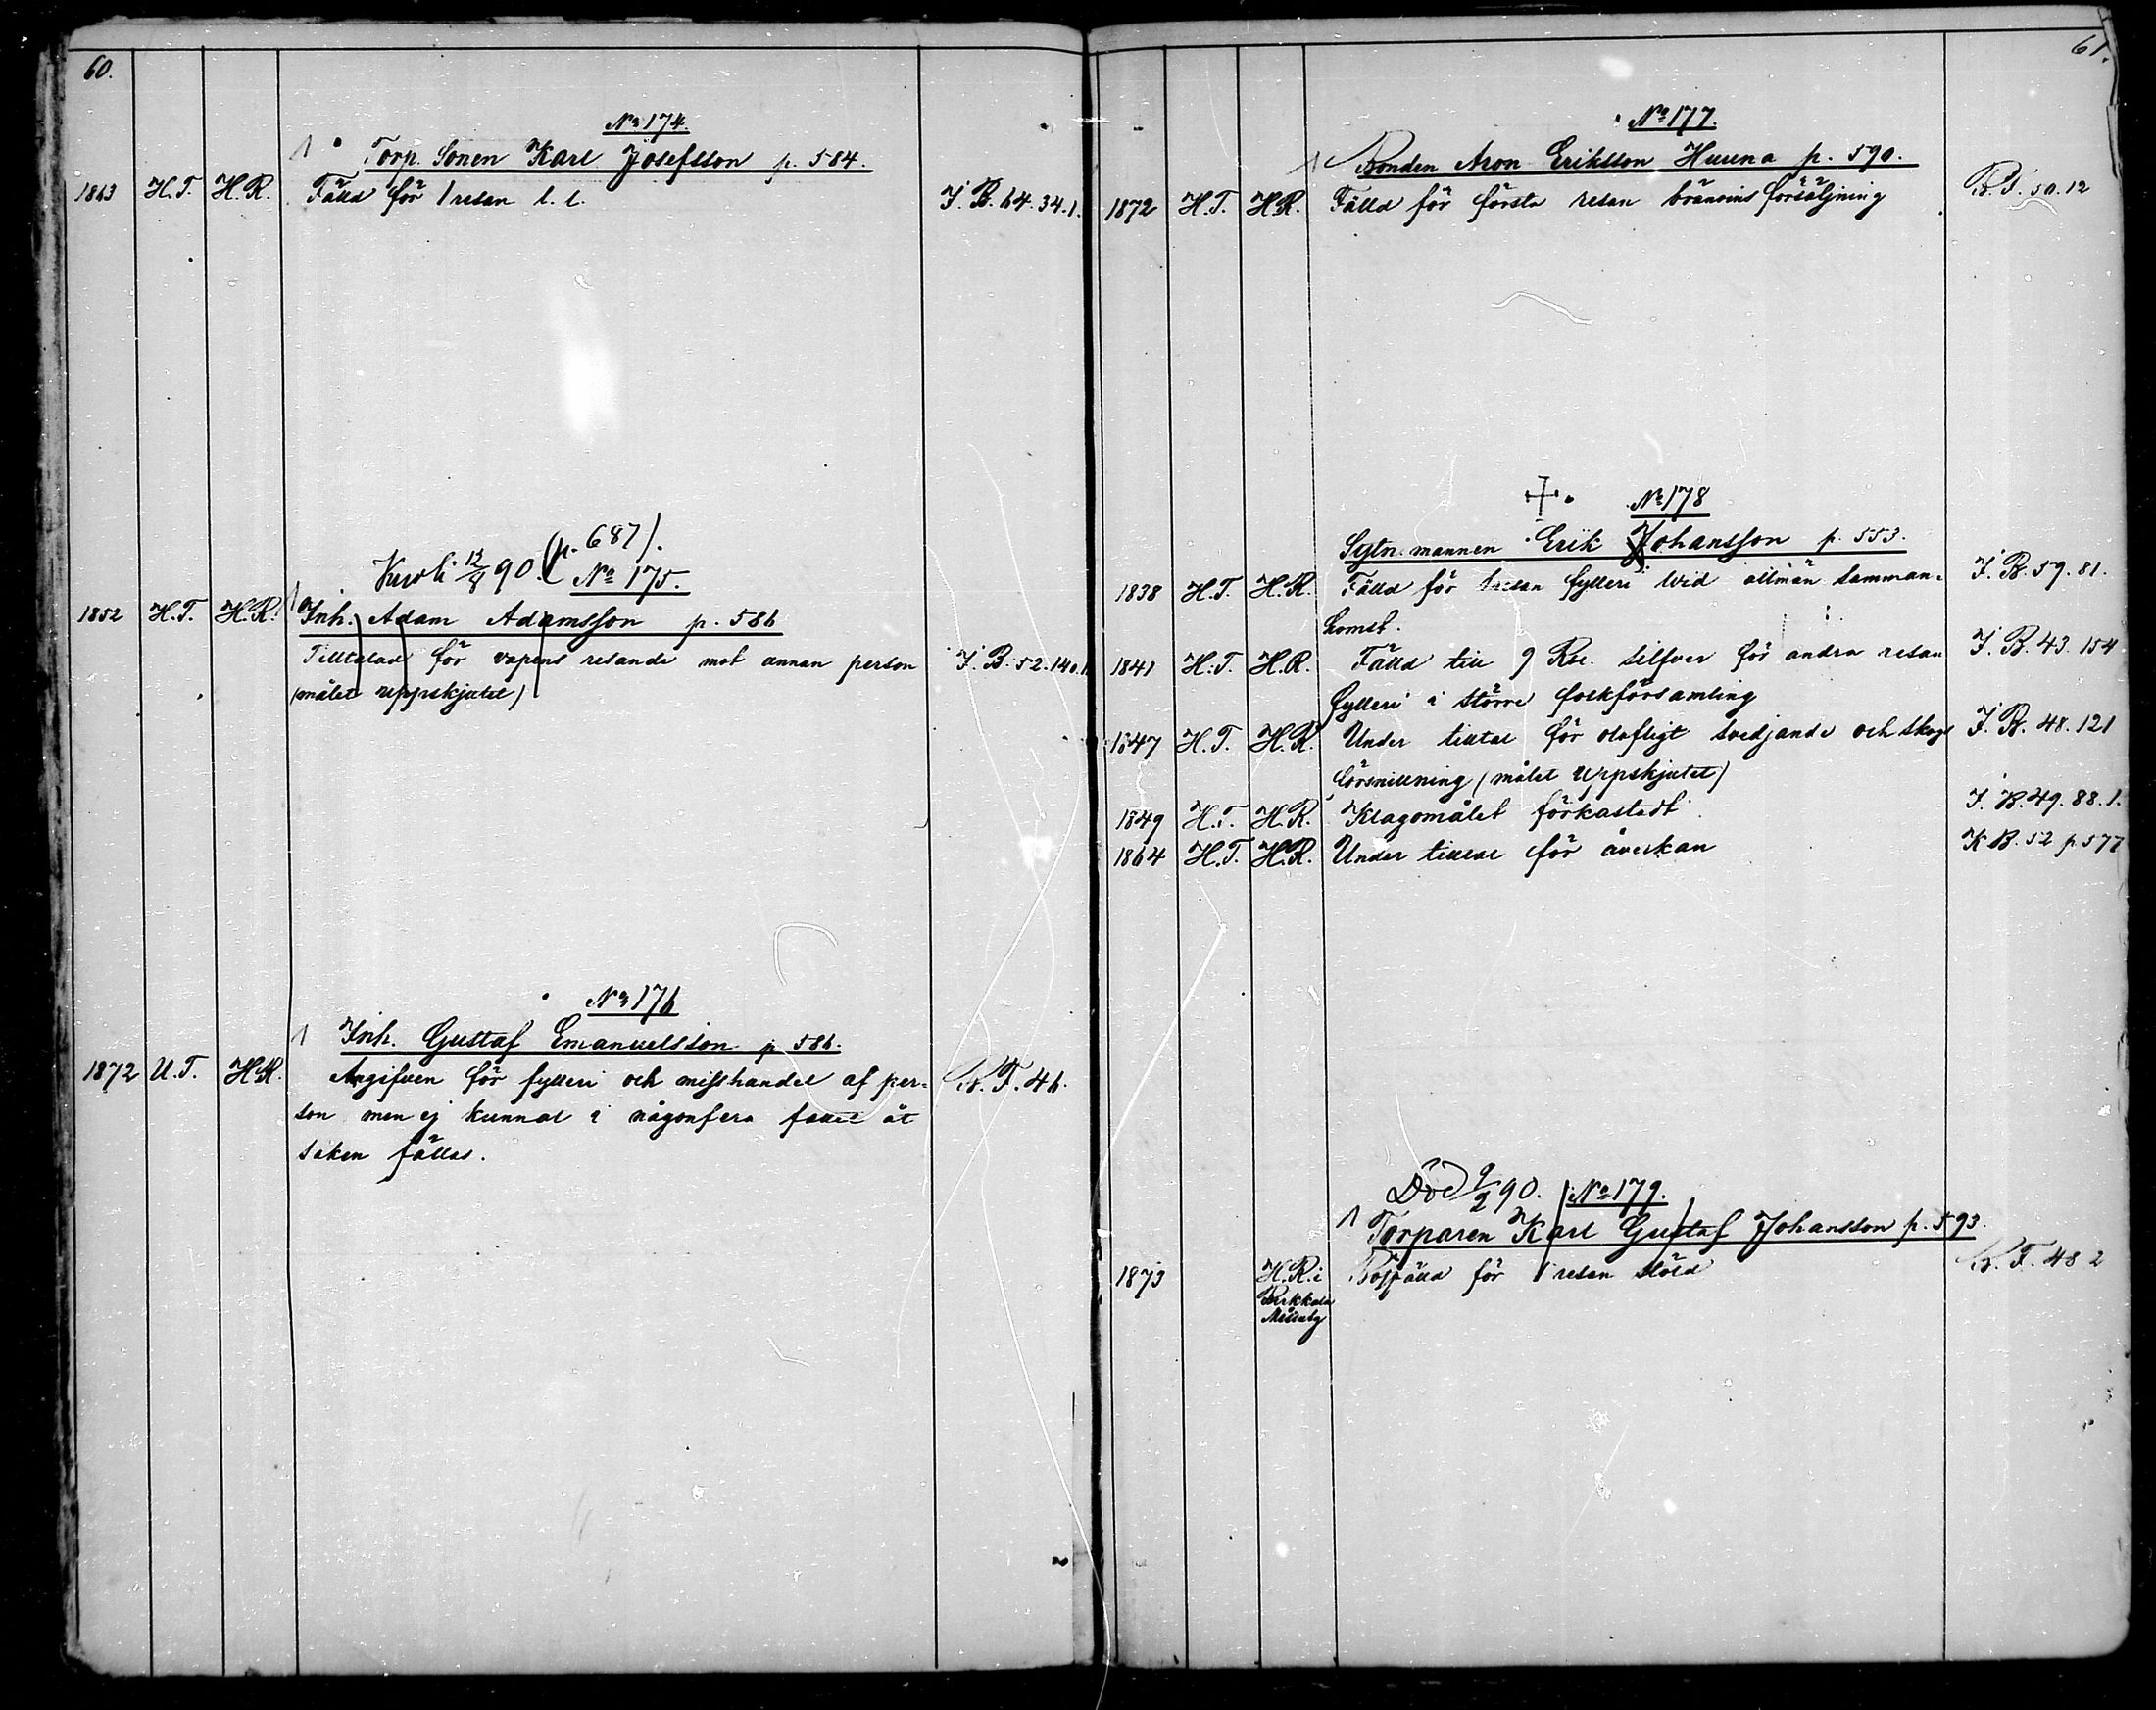 60.
No 174.
Torp. Sonen Karl Josefsson p. 584.
1863 H.T. H.R. Fälld för 1 resan l. l. J. B. 64. 34. 1.
Kuoli 12/8 90. (p. 687).
No 175.
Inh. Adam Adamsson p. 586
1852 H.T. H.R. Tilltalad för vapens resande mot annan person J. B. 52. 140. 1.
(målet uppskjutet)
No 176
Inh. Gustaf Emanuelsson p 586.
1872 U.T. H.R. Angifven för fylleri och misshandel af per-
son men ej kunnat i någonfera fallet åt
saken fällas.
N. F. 46.
61.
No 177.
Bonden Aron Eriksson Huuna p. 590.
1872 H.T. H.R. Fälld för första resan bränvins försäljning 50. 12
No 178
Sytn. mannen Erik Johansson p. 553.
1838 H.T. H.R. Fälld för 1 resan fylleri wid allmän samman- J. B. 59. 81.
komst.
1841 H.T. H.R. Fälld till 9 Rbl. silfver för andra resan J. B. 43. 154
fylleri i större folkförsamling
1847 H.T. H.R. Under tilltal för olofligt svedjande och skogs J. B. 48. 121
försnillning (målet Uppskjutet)
1849 H.T. H.R. Klagomålet förkastadt J. B. 49. 88. 1.
1864 H.T. H.R. Under tilltal för åverkan K B. 52 p 577
Död 9/2 90. No 179.
Torparen Karl Gustaf Johansson p. 593.
1873 H.R. i Botfälld för 1 resan stöld N. F. 48 2
Birkkala